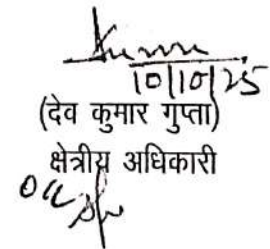 10/10/25
(देव कुमार गुप्ता)
क्षेत्रीय अधिकारी